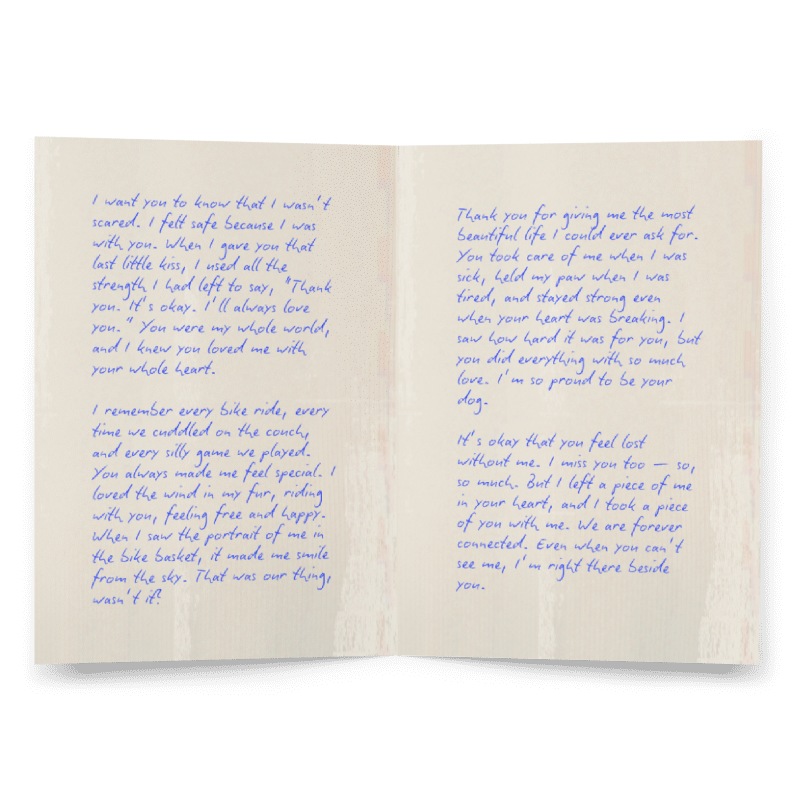 I want you to know that I wasn't
scared. I felt safe because I was
with you. When I gave you that
last little kiss, I used all the
strength I had left to say, "Thank
you. It's okay. I'll always love
you." You were my whole world,
and I knew you loved me with
your whole heart.
I remember every bike ride, every
time we cuddled on the couch,
and every silly game we played.
You always made me feel special. I
loved the wind in my fur, riding
with you, feeling free and happy.
When I saw the portrait of me in
the bike basket, it made me smile
from the sky. That was our thing,
wasn't it?
Thank you for giving me the most
beautiful life I could ever ask for.
You took care of me when I was
sick, held my paw when I was
tired, and stayed strong even
when your heart was breaking. I
saw how hard it was for you, but
you did everything with so much
love. I'm so proud to be your
dog.
It's okay that you feel lost
without me. I miss you too — so,
so much. But I left a piece of me
in your heart, and I took a piece
of you with me. We are forever
connected. Even when you can't
see me, I'm right there beside
you.